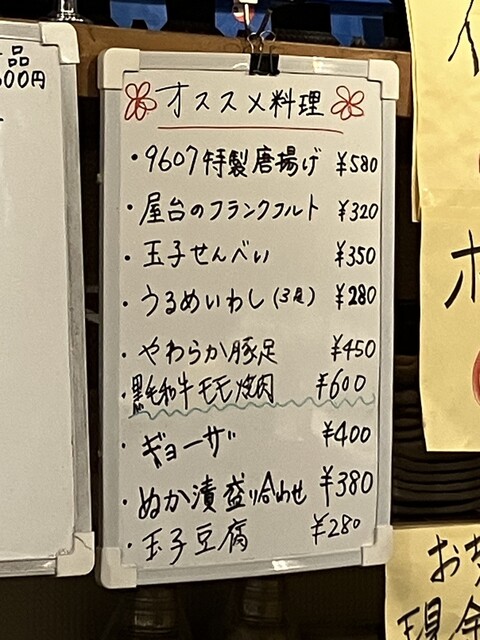 品
600円
オススメ料理
・9607特製唐揚げ ¥580
・屋台のフランクフルト ¥320
・玉子せんべい ¥350
・うるめいわし(3尾) ¥280
・やわらか豚足 ¥450
・黒毛和牛モモ焼肉 ¥600
・ギョーザ ¥400
・ぬか漬盛り合わせ ¥380
・玉子豆腐 ¥280
お
現金